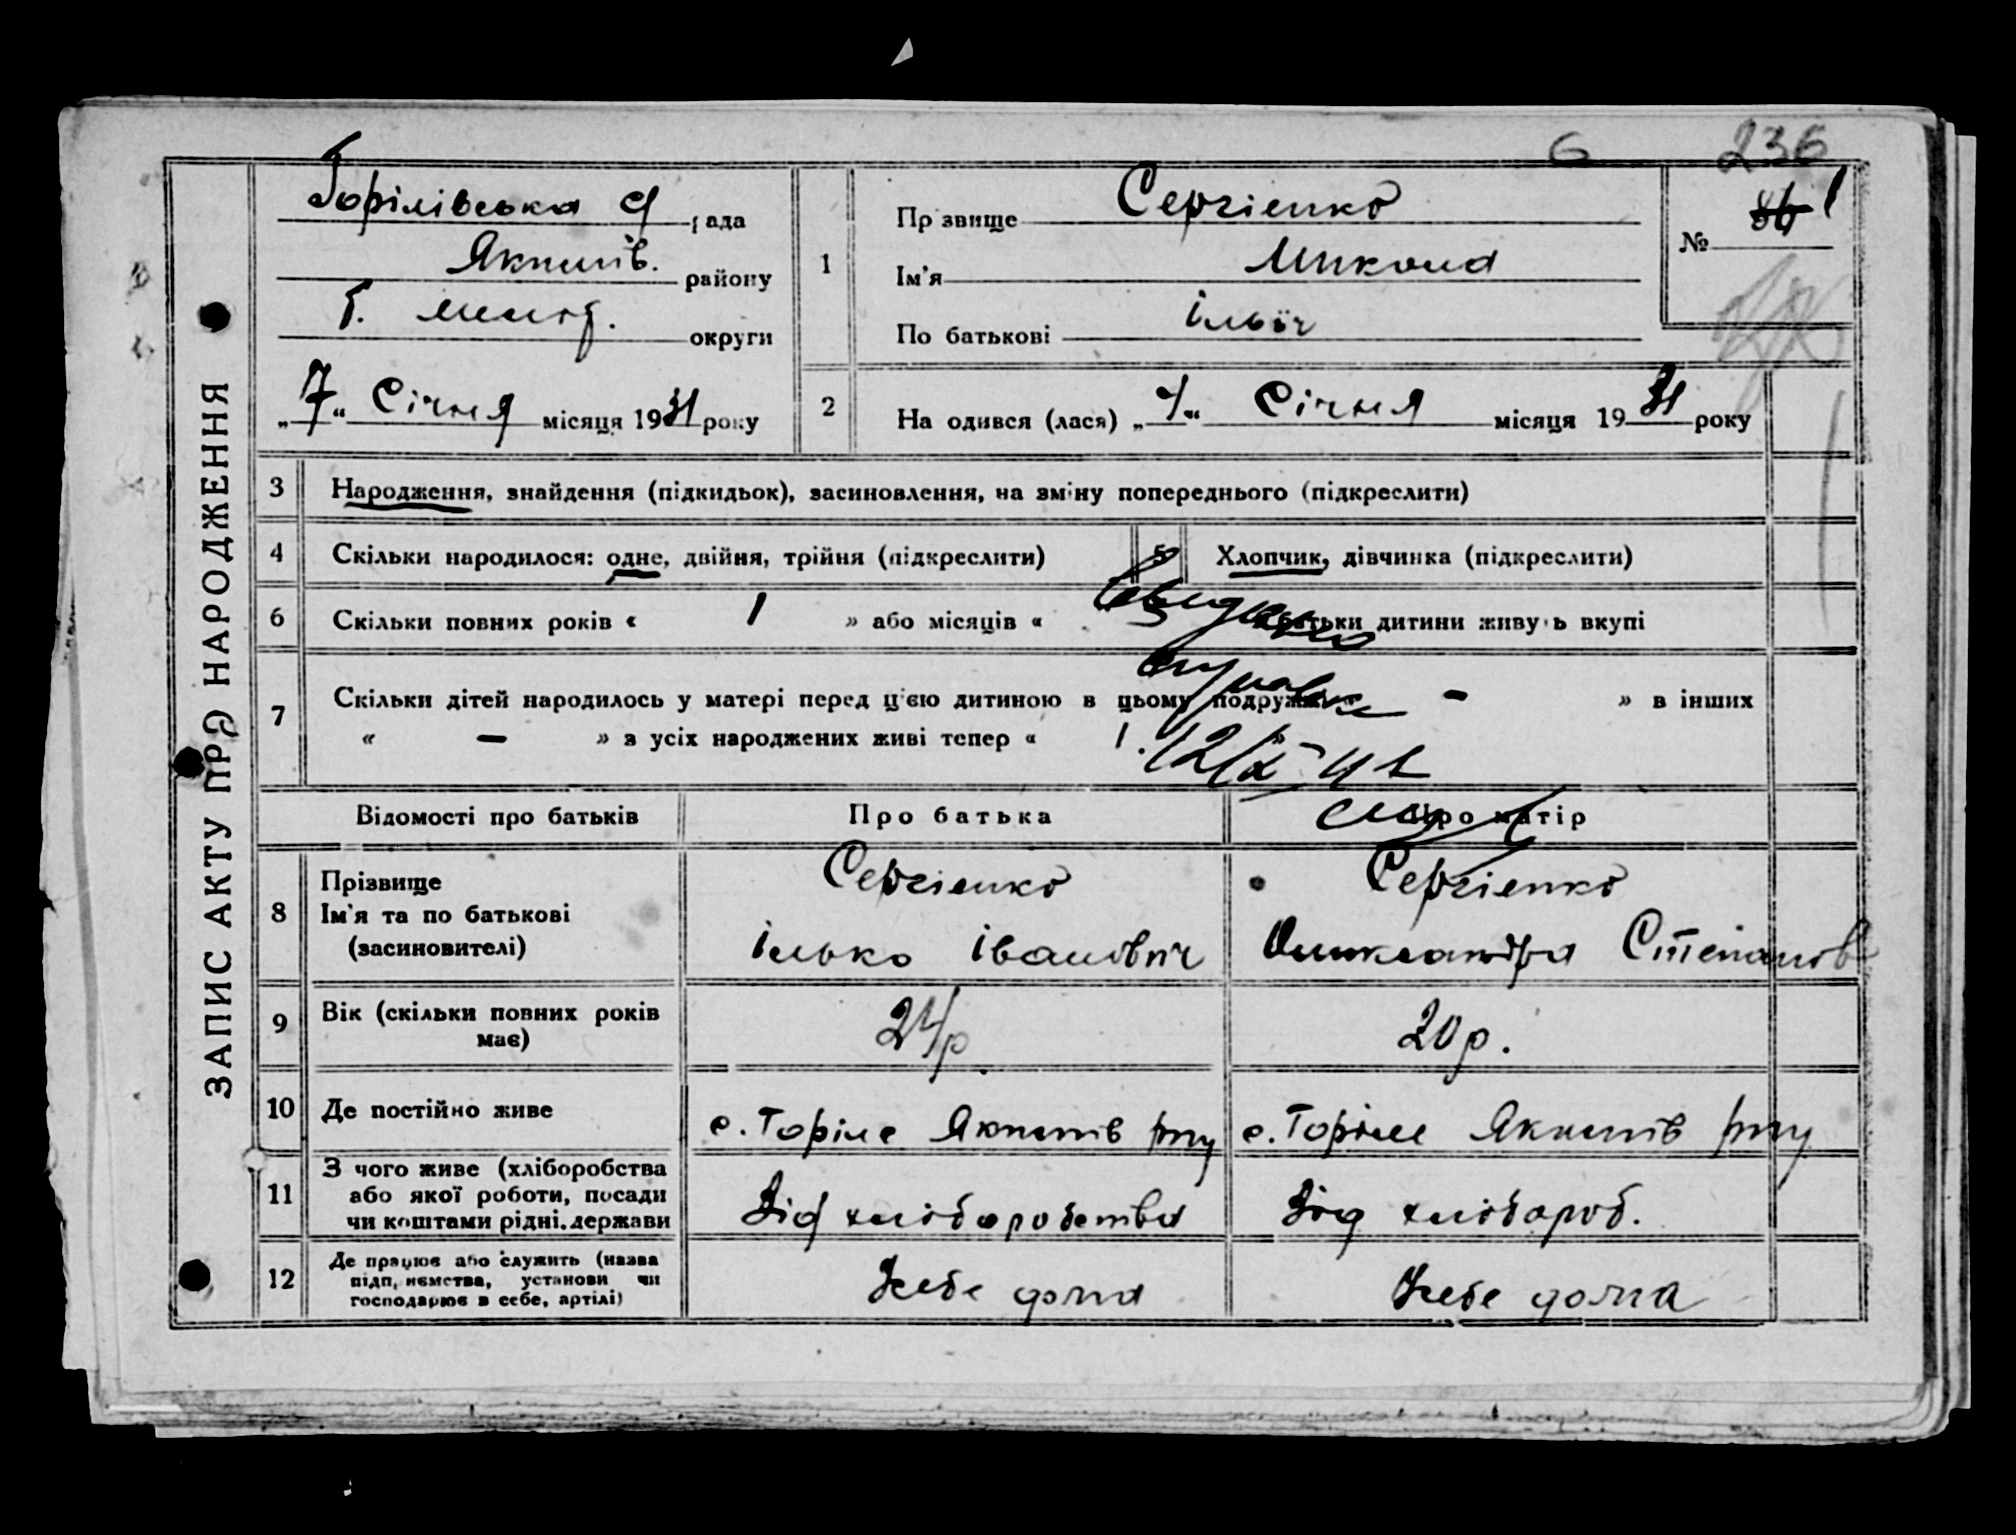 6 236
Горілівська С рада
Якимів. району
округи
„7“ Січня місяця 1931 року
ЗАПИС АКТУ ПРО НАРОДЖЕННЯ
1 Прізвище Сергієнко
Ім'я Микола
По батькові Ільїч
№ 1
2 На одився (лася) „ “ Січня місяця 1931 року
3 Народження, знайдення (підкидьок), засиновлення, на зміну попереднього (підкреслити)
4 Скільки народилося: одне, двійня, трійня (підкреслити) 5 Хлопчик, дівчинка (підкреслити)
6 Скільки повних років « 1 » або місяців « батьки дитини живуть вкупі
7 Скільки дітей народилось у матері перед цією дитиною в цьому подружжі « - » в інших
« - » з усіх народжених живі тепер « 1.
Відомості про батьків Про батька Про матір
8 Прізвище Сергієнко Сергієнко
Ім'я та по батькові
(засиновителі) Ілько Іванович Олександра Степанов
9 Вік (скільки повних років має) 24р 20р.
10 Де постійно живе с. Горіле Якимів рну с. Горіле Якимів рну
11 З чого живе (хліборобства
або якої роботи, посади
чи коштами рідні, держави Від хліборобства Від хлібороб.
12 Де працює або служить (назва
підприємства, установи чи
господарює в себе, артілі) У себе дома У себе дома